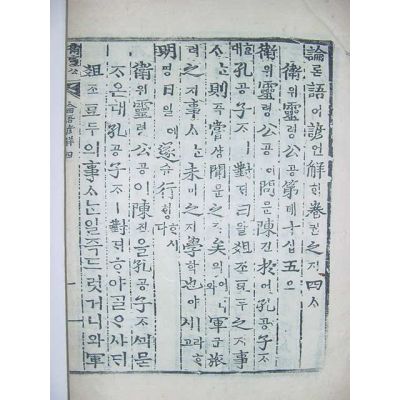 論론語어諺언解ᄒᆡ卷권之지四ᄉᆞ
衛위靈령公공第뎨十십五오
衛위靈령公공이問문陳진於어孔공子ᄌᆞ
ᄒᆞᆫ대孔공子ᄌᆞㅣ對ᄃᆡ曰왈俎조豆두之지事
ᄉᆞᄂᆞᆫ則즉嘗샹聞문之지矣의어니와軍군旅
려之지事ᄉᆞᄂᆞᆫ未미之지學ᄒᆞᆨ也야ㅣ라ᄒᆞ시고
明명日일에遂슈行ᄒᆡᆼᄒᆞ시다
衛위靈령公공이陳진을孔공子ᄌᆞᄭᅴ묻
ᄌᆞ온대孔공子ᄌᆞㅣ對ᄃᆡᄒᆞ야ᄀᆞᆯᄋᆞ샤ᄃᆡ
俎조豆두의事ᄉᆞᄂᆞᆫ일즉드럿거니와軍
論語諺解 四